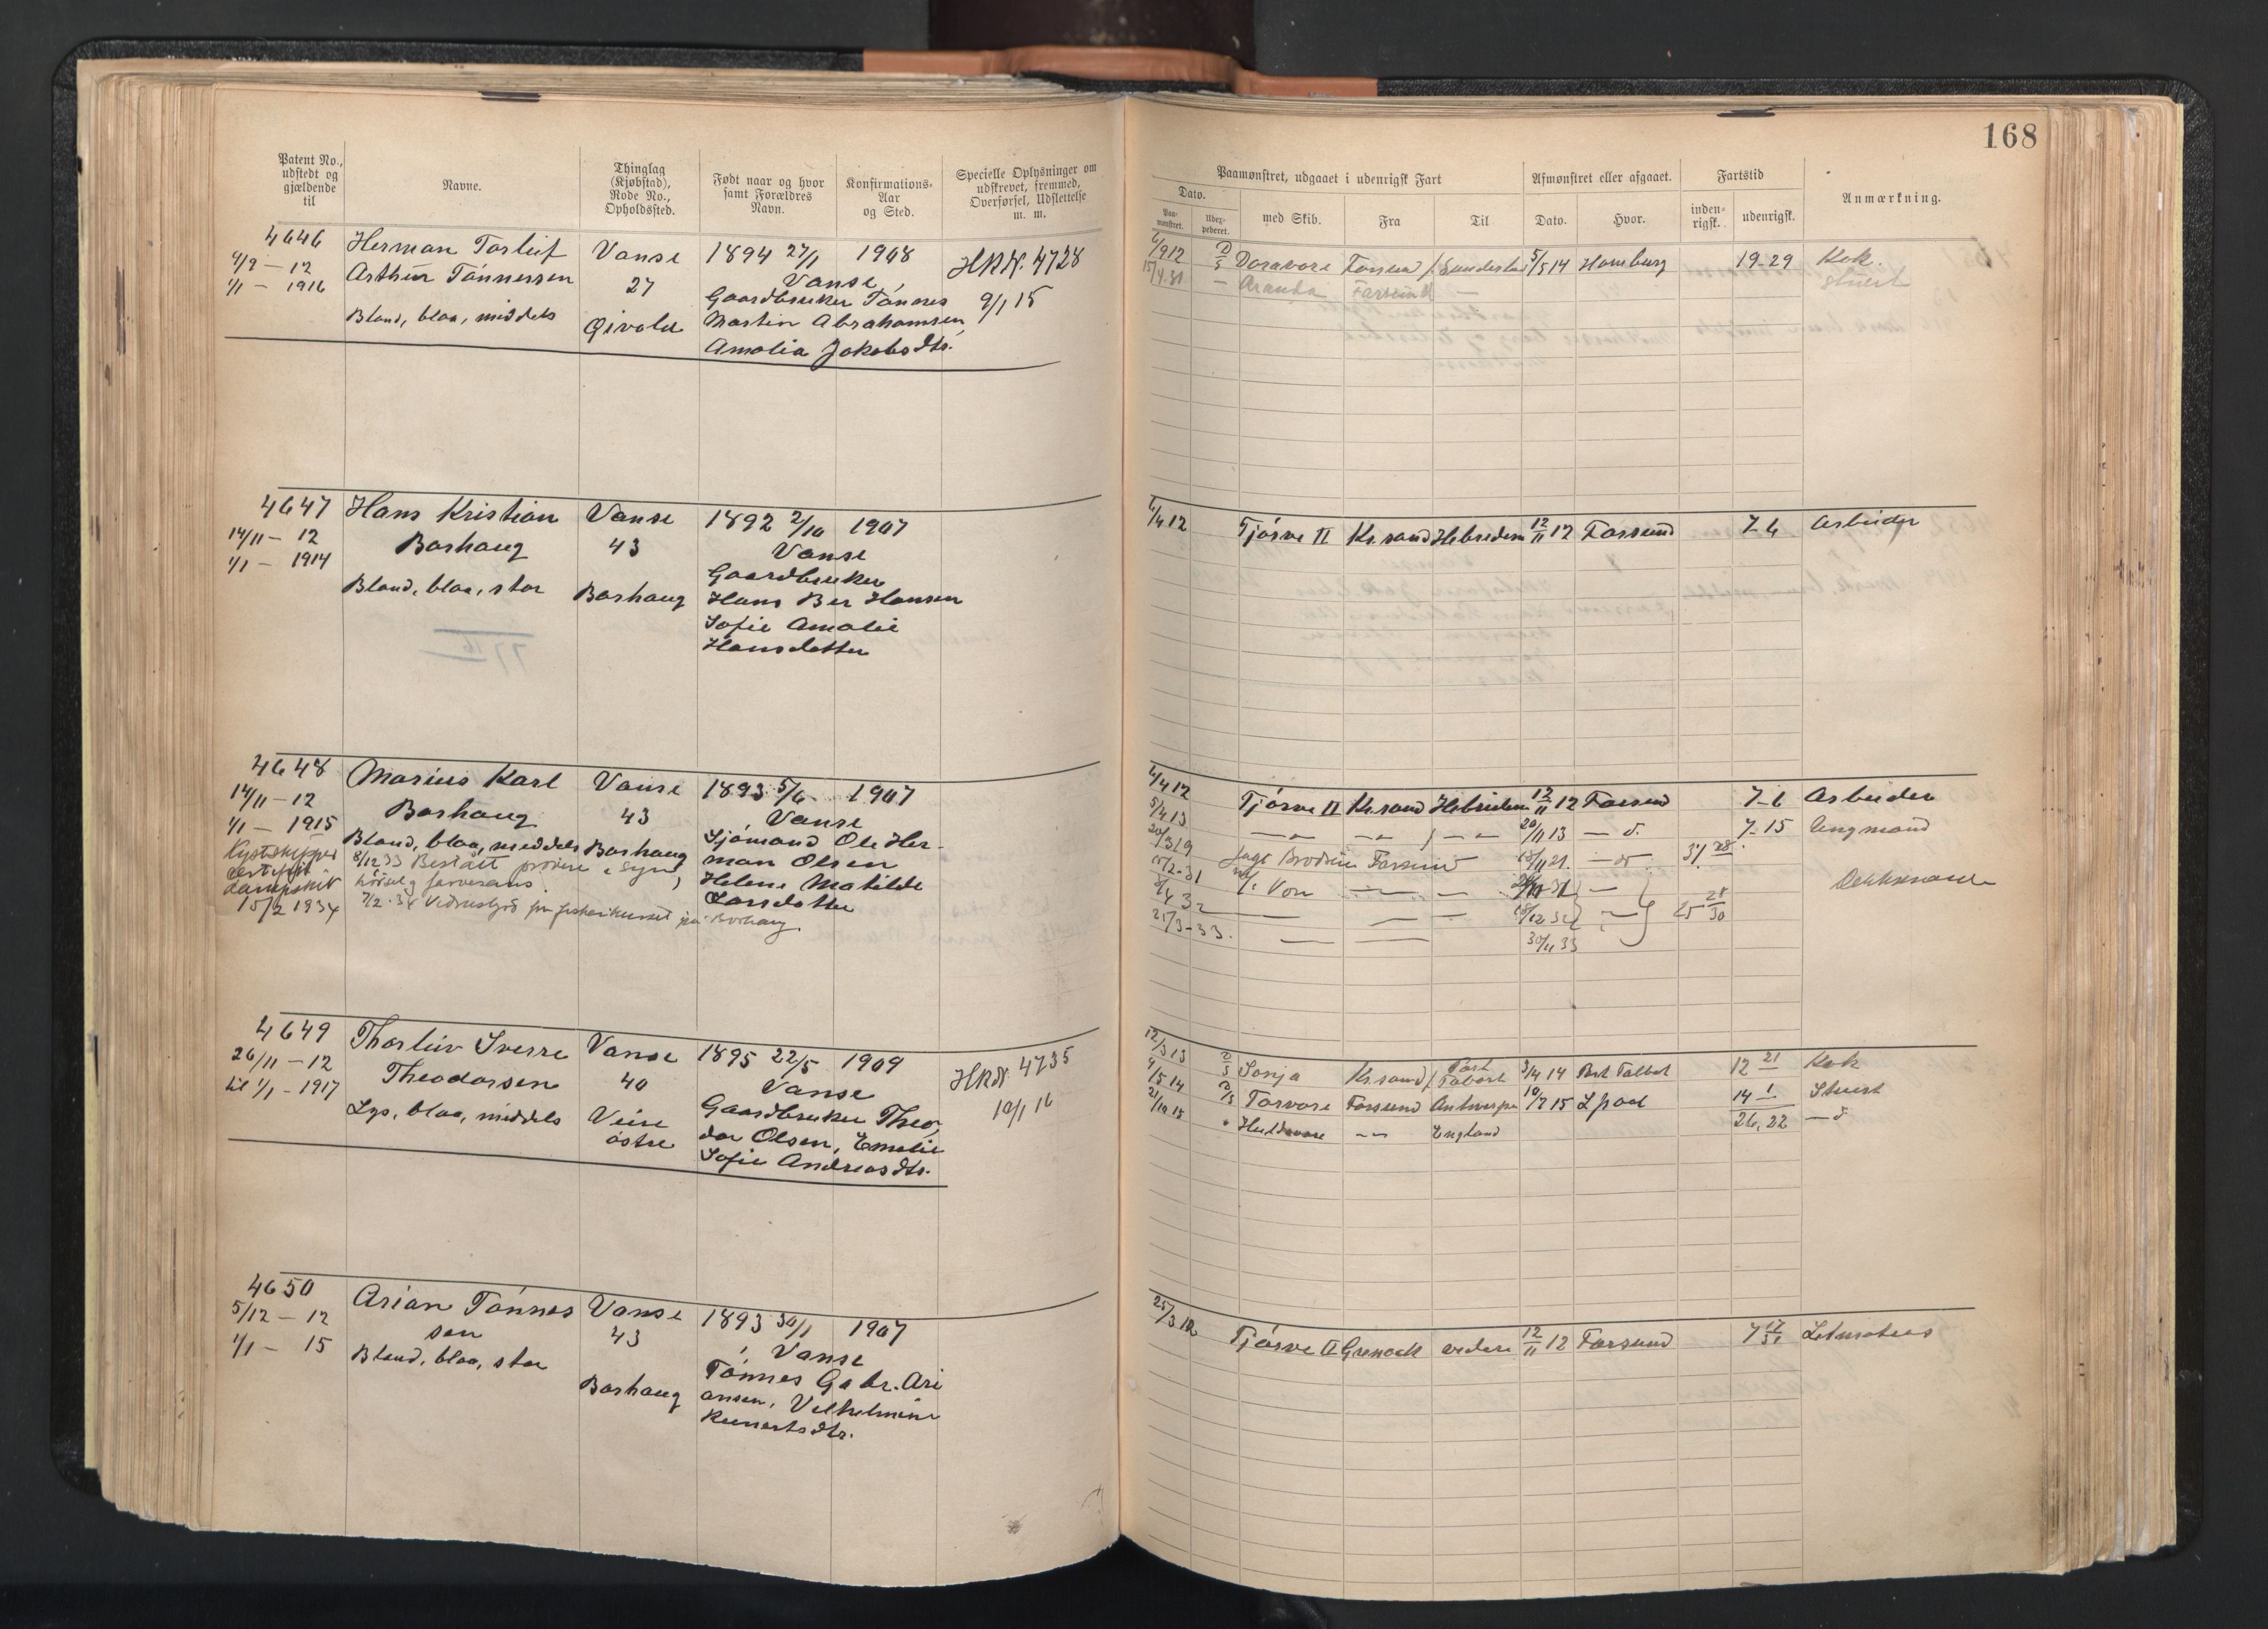 168
Patent No., udstedt og gjældende til
Navne.
Thinglag (Kjøbstad), Rode No., Opholdssted.
Født naar og hvor samt Forældres Navn.
Konfirmations-Aar og Sted.
Specielle Oplysninger om udskrevet, fremmed, Overførsel, Udslettelse m. m.
Paamønstret, udgaaet i udenrigsk Fart
Afmønstret eller afgaaet.
Fartstid
Anmærkning.
Dato.
med Skib.
Fra
Til
Dato.
Hvor.
inden-rigsk.
udenrigsk.
4646 Herman Torleif Vanse 1894 27/1 1908 HRN. 4728
4/9 — 12 Arthur Tönnessen 27 Vanse 9/1 15
1/1 — 1916 Gaardbruker Tönnes
Bland, blaa, middels Martin Abrahamsen,
Amalia Jakobsdtr.
6/9 12 D/S Doravore Farsund / 5/5 14 Hamburg 19-29 Kok.
15/4.31 — Aranda Farsund — Stuert
4647 Hans Kristian Vanse 1892 2/10 1907
14/11 — 12 Borhaug 43 Vanse
1/1 — 1914 Gaardbruker
Bland, blaa, stor Borhaug Hans Ber Hansen
Sofie Amalie
Hansdatter
6/4 12 Tjörve II Kr.sand Hebriderne 12/11 12 Farsund 7-6 Arbeider
4648 Marius Karl Vanse 1893 5/6 1907
14/11 — 12 Borhaug 43 Vanse
1/1 — 1915 Bland, blaa, middels Borhaug Sjömand Ole Her-
Kystskipper man Olsen
8/12 33 Bestått prövene i syn,
Helene Matilde
hörsel og farvesans.
Larsdatter
15/2 1934
6/4 12 Tjörve II Kr.sand Hebriderne 12/11 12 Farsund 7-6 Arbeider
5/4 13 — " — — " — — " — 20/11 13 — d. 7-15 Ungmand
20/3 19 Jagt Farsund 15/11 21. — do
15/2-31 Von — — — Dekksmand
3/4 32 — — — 15/12 32 —
21/3-33. — — 30/11 33
4649 Thorleiv Sverre Vanse 1895 22/5 1909 HRN. 4735
26/11 — 12 Theodorsen 40 Vanse 10/1 16
til 1/1 - 1917 Gaardbruker Theo-
Lys, blaa, middels Veire dor Olsen, Emelie
östre Sofie Andreasdtr.
12/3 13 D/S Sonja Kr.sand / Port Talbot 3/4 14 Port Talbot 12 21 Kok
9/5 14 D/S Torvore Farsund Antwerpen 10/7 15 L.pool 14 1 Stuert
21/10 15 " Huldavore — " — England 26,22 — d
4650 Arian Tönnes Vanse 1893 30/1 1907
5/12 — 12 sen 43 Vanse
1/1 — 15 Bland, blaa, stor Tönnes Gabr. Ari
Borhaug ansen, Vilhelmine
25/3 12 Tjörve II Grenock videre 12/11 12 Farsund 7 17/31 Letmatros